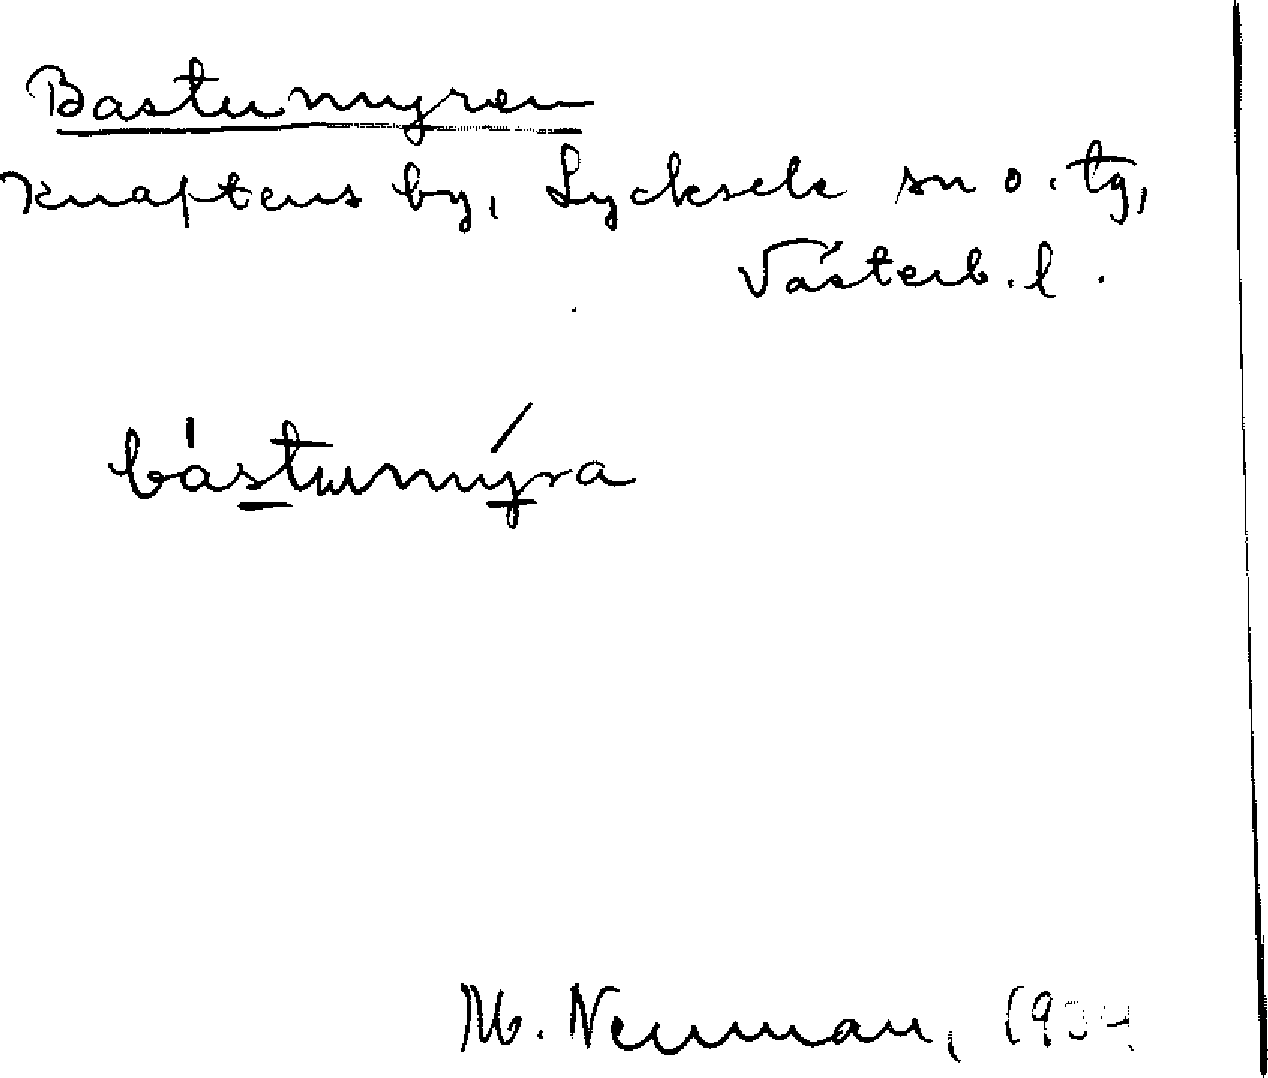 Bastumyren
Knaftens by, Lycksele sn o. tg,
Västerb. l.
bástumýra
M. Neuman, 1934